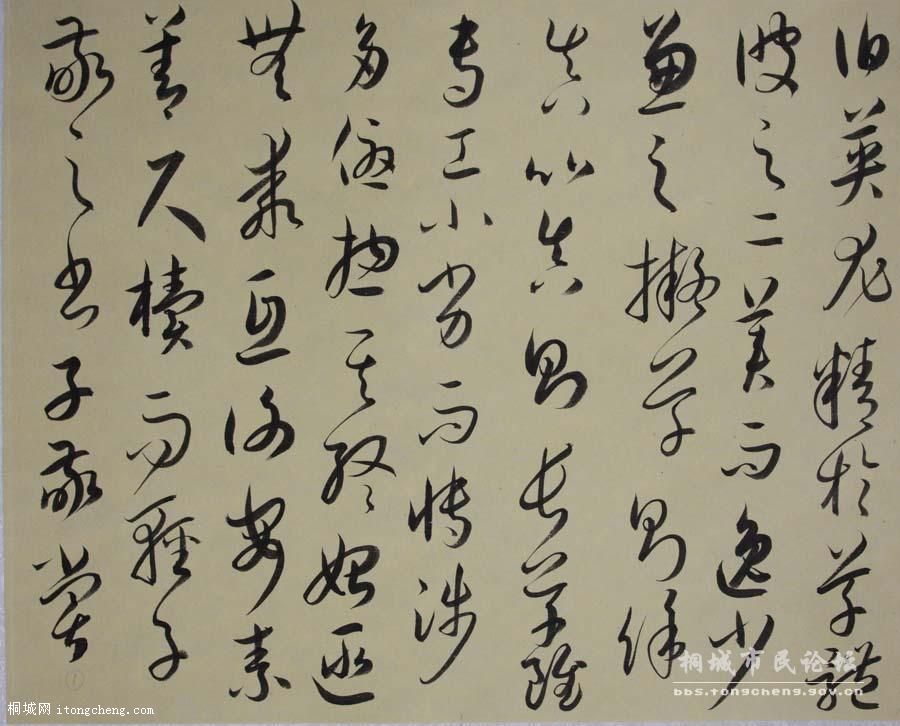 伯英尤精於草體
彼之二美而逸少
兼之擬草則餘
真比真則長草雖
專工小劣而博涉
多優揔其終始匪
無乖互謝安素
善尺牘而輕子
敬之書子敬嘗
①
桐城市民论坛
bbs.tongcheng.gov.cn
桐城网 itongcheng.com